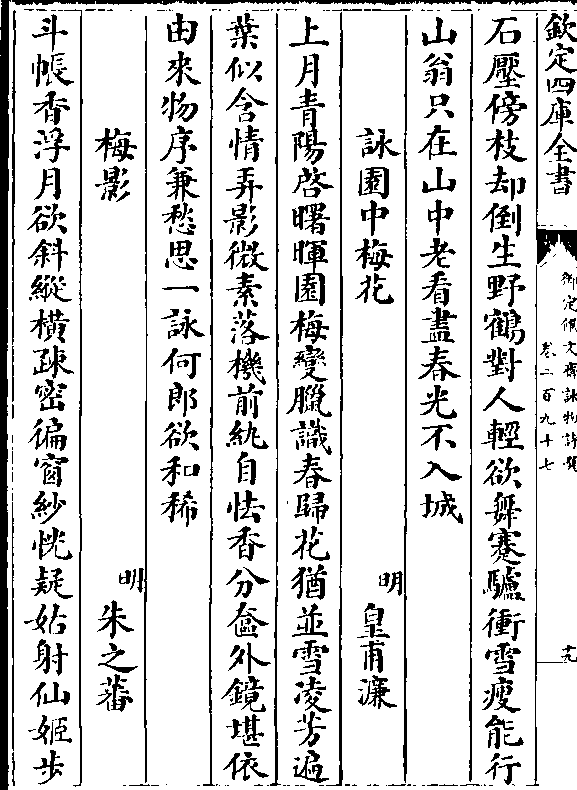 欽定四庫全書
御定佩文齋詠物詩選
卷二百九十七
十九
石壓傍枝却倒生野鶴對人輕欲舞蹇驢衝雪瘦能行
山翁只在山中老看盡春光不入城
詠園中梅花
明 皇甫濂
上月青陽啓曙暉園梅變臘識春歸花猶並雪凌芳遍
葉似含情弄影微素落機前紈自怯香分奩外鏡堪依
由來物序兼愁思一詠何郎欲和稀
梅影
明 朱之蕃
斗帳香浮月欲斜縱橫疎密徧窗紗恍疑姑射仙姬步